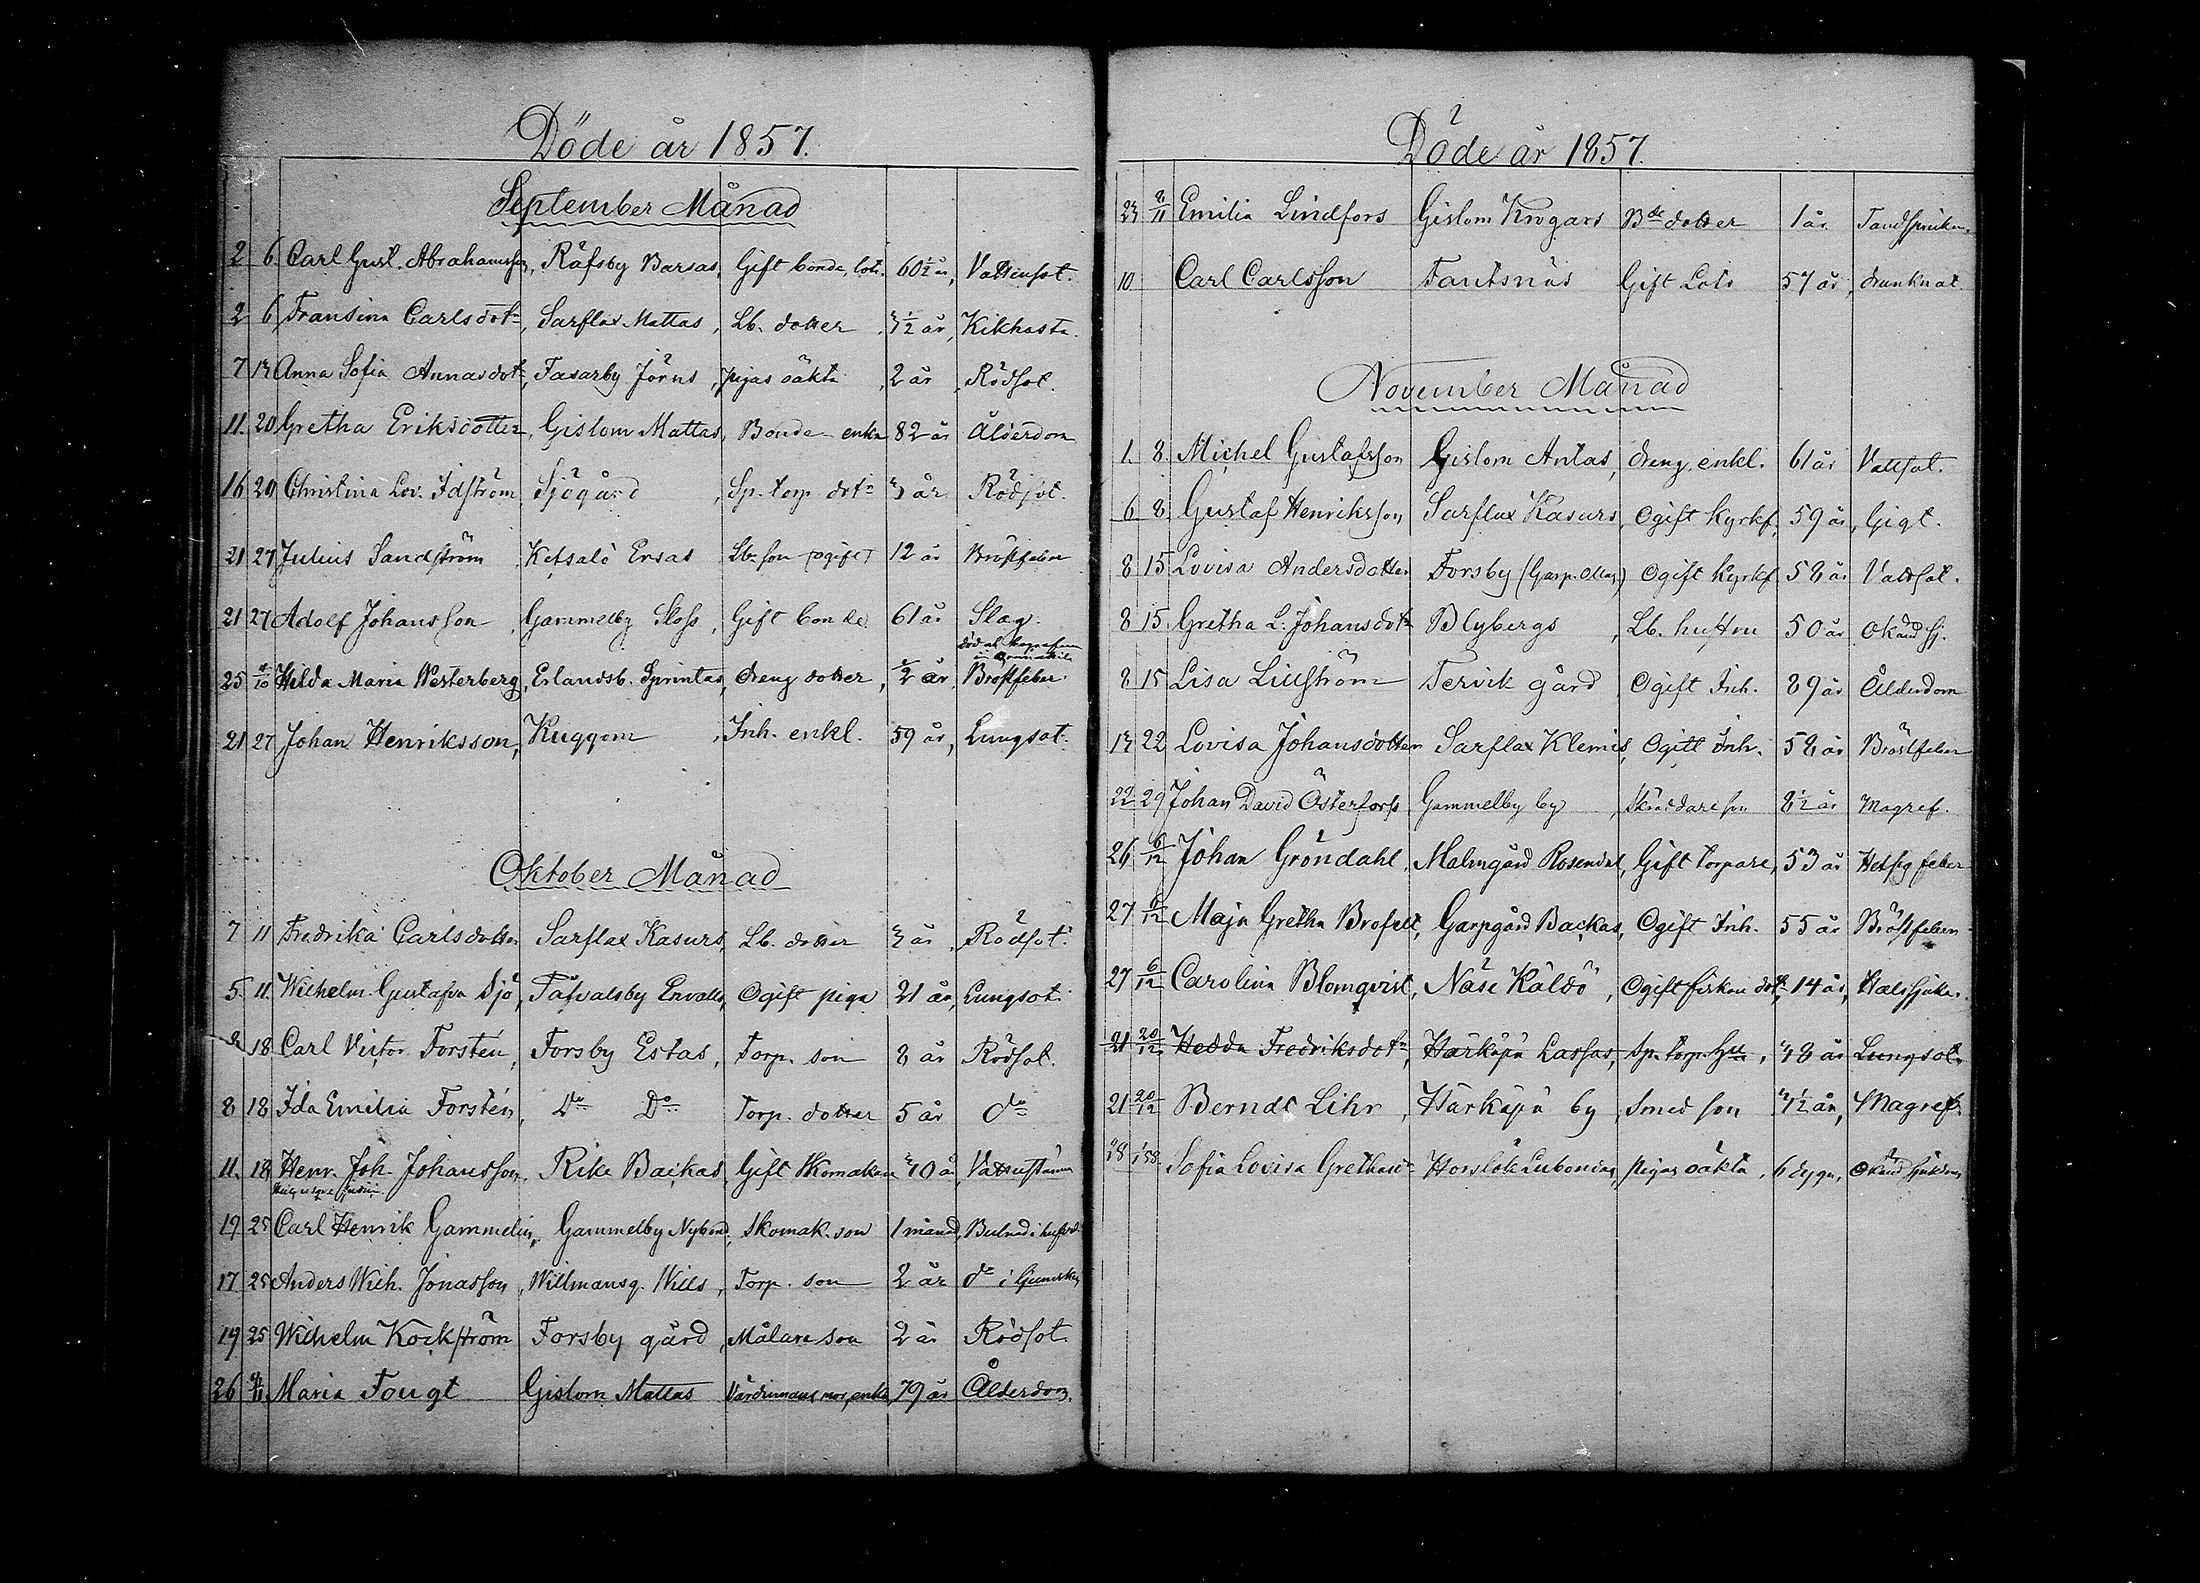 Döde år 1857.
September Månad
2 6 Carl Gust. Abrahamsson, Räfsby Barsas, Gift bonde, lots. 60 1/2 år, Vattusot.
2 6 Fransina Carlsdotr, Sarflax Mattas, Lb. dotter, 3 1/2 år, Kikhosta.
7 13 Anna Sofia Annasdotr, Fasarby Jörns, pigas oäkta, 2 år, Rödsot.
11. 20 Gretha Eriksdotter, Gislom Mattas, Bonde-enka 82 år Ålderdom
16 20 Christina Lov. Idström Sjögård, Sp. torp. dotr 3 år Rödsot.
21 27 Julius Sandström Ketsalö Ersas Lb. son (ogift) 12 år Bröstfeber
21 27 Adolf Johansson, Gammelby Sloss, Gift bonde 61 år Slag.
25 4/10 Hilda Maria Westerberg, Erlandsb. Sprintas, dreng dotter, 1/2 år, Bröstfeber.
21 27 Johan Henriksson, Kuggom, Inh. enkl. 59 år, Lungsot.
Oktober Månad
7 11 Fredrika Carlsdotter Sarflax Kasurs, Lb. dotter 3 år, Rödsot.
5. 11. Wilhelm. Gustafva Sjö, Tåfvalsby Ervalls, Ogift piga 21 år, Lungsot.
8 18 Carl Victor Forstén, Forsby Estas, Torp. son 8 år Rödsot.
8 18 Ida Emilia Forstén, Do Do Torp. dotter 5 år do
11. 18 Henr. Joh. Johansson, Rike Backas, Gift Skomakare 40 år,
19 25 Carl Henrik Gammelin, Gammelby Nybond, Skomak. son 1 månad,
17 25 Anders Wilh. Jonasson, Willmansg. Wills, Torp. son 2 år do i
19 25 Wilhelm Köckström Forsby gård, Målare son 2 år Rödsot.
26 8/11 Maria Fougt Gislom Mattas Värdinnans mor, enka, 79 år Ålderdom.
Döde år 1857.
23 8/11 Emilia Lindfors Gislom Krogars Bde dotter 1 år
10 Carl Carlsson Tantsnäs Gift Lots 57 år, drunknat.
November Månad
1. 8. Michel Gustafsson Gislom Antas, dreng. enkl. 61 år Vattsot.
6 8 Gustaf Henriksson Sarflax Kasurs, Ogift kyrkf. 59 år, Gigt.
8 15 Lovisa Andersdotter Forsby Ogift Kyrkf 58 år Vattsot.
8 15. Gretha L. Johansdotr Blybergs, Lb. hustru 50 år Okänd sj.
8 15 Lisa Liliström Tervik gård Ogift Inh. 89 år Ålderdom
13 22 Lovisa Johansdotter Sarflax Klemis, Ogift Inh. 58 år Bröstfeber
22 29 Johan David Österforss Gammelby by, Skräddare son 8 1/2 år Magref.
26 6/12 Johan Gröndahl, Malmgård Rosendal, Gift torpare, 53 år Hetsig feber
27 6/12 Maja Gretha Brofelt, Garpgård Backas, Ogift Inh. 55 år Bröstfeber
27 6/12 Carolina Blomqvist, Näse Käldö, Ogift fiskare dotr, 14 år, Halssjukd.
21 20/12 Hedda Fredriksdotr, Härkäpä Lassas, Sp. torp. hu, 48 år Lungsot.
21 20/12 Berndt Lihr, Härkäpä by, Smed son 4 1/2 år, Magref.
28 1/1 58. Sofia Lovisa Grethasd. Horslök Lubonias, pigas oäkta, 6 dygn, Okänd sjukdom